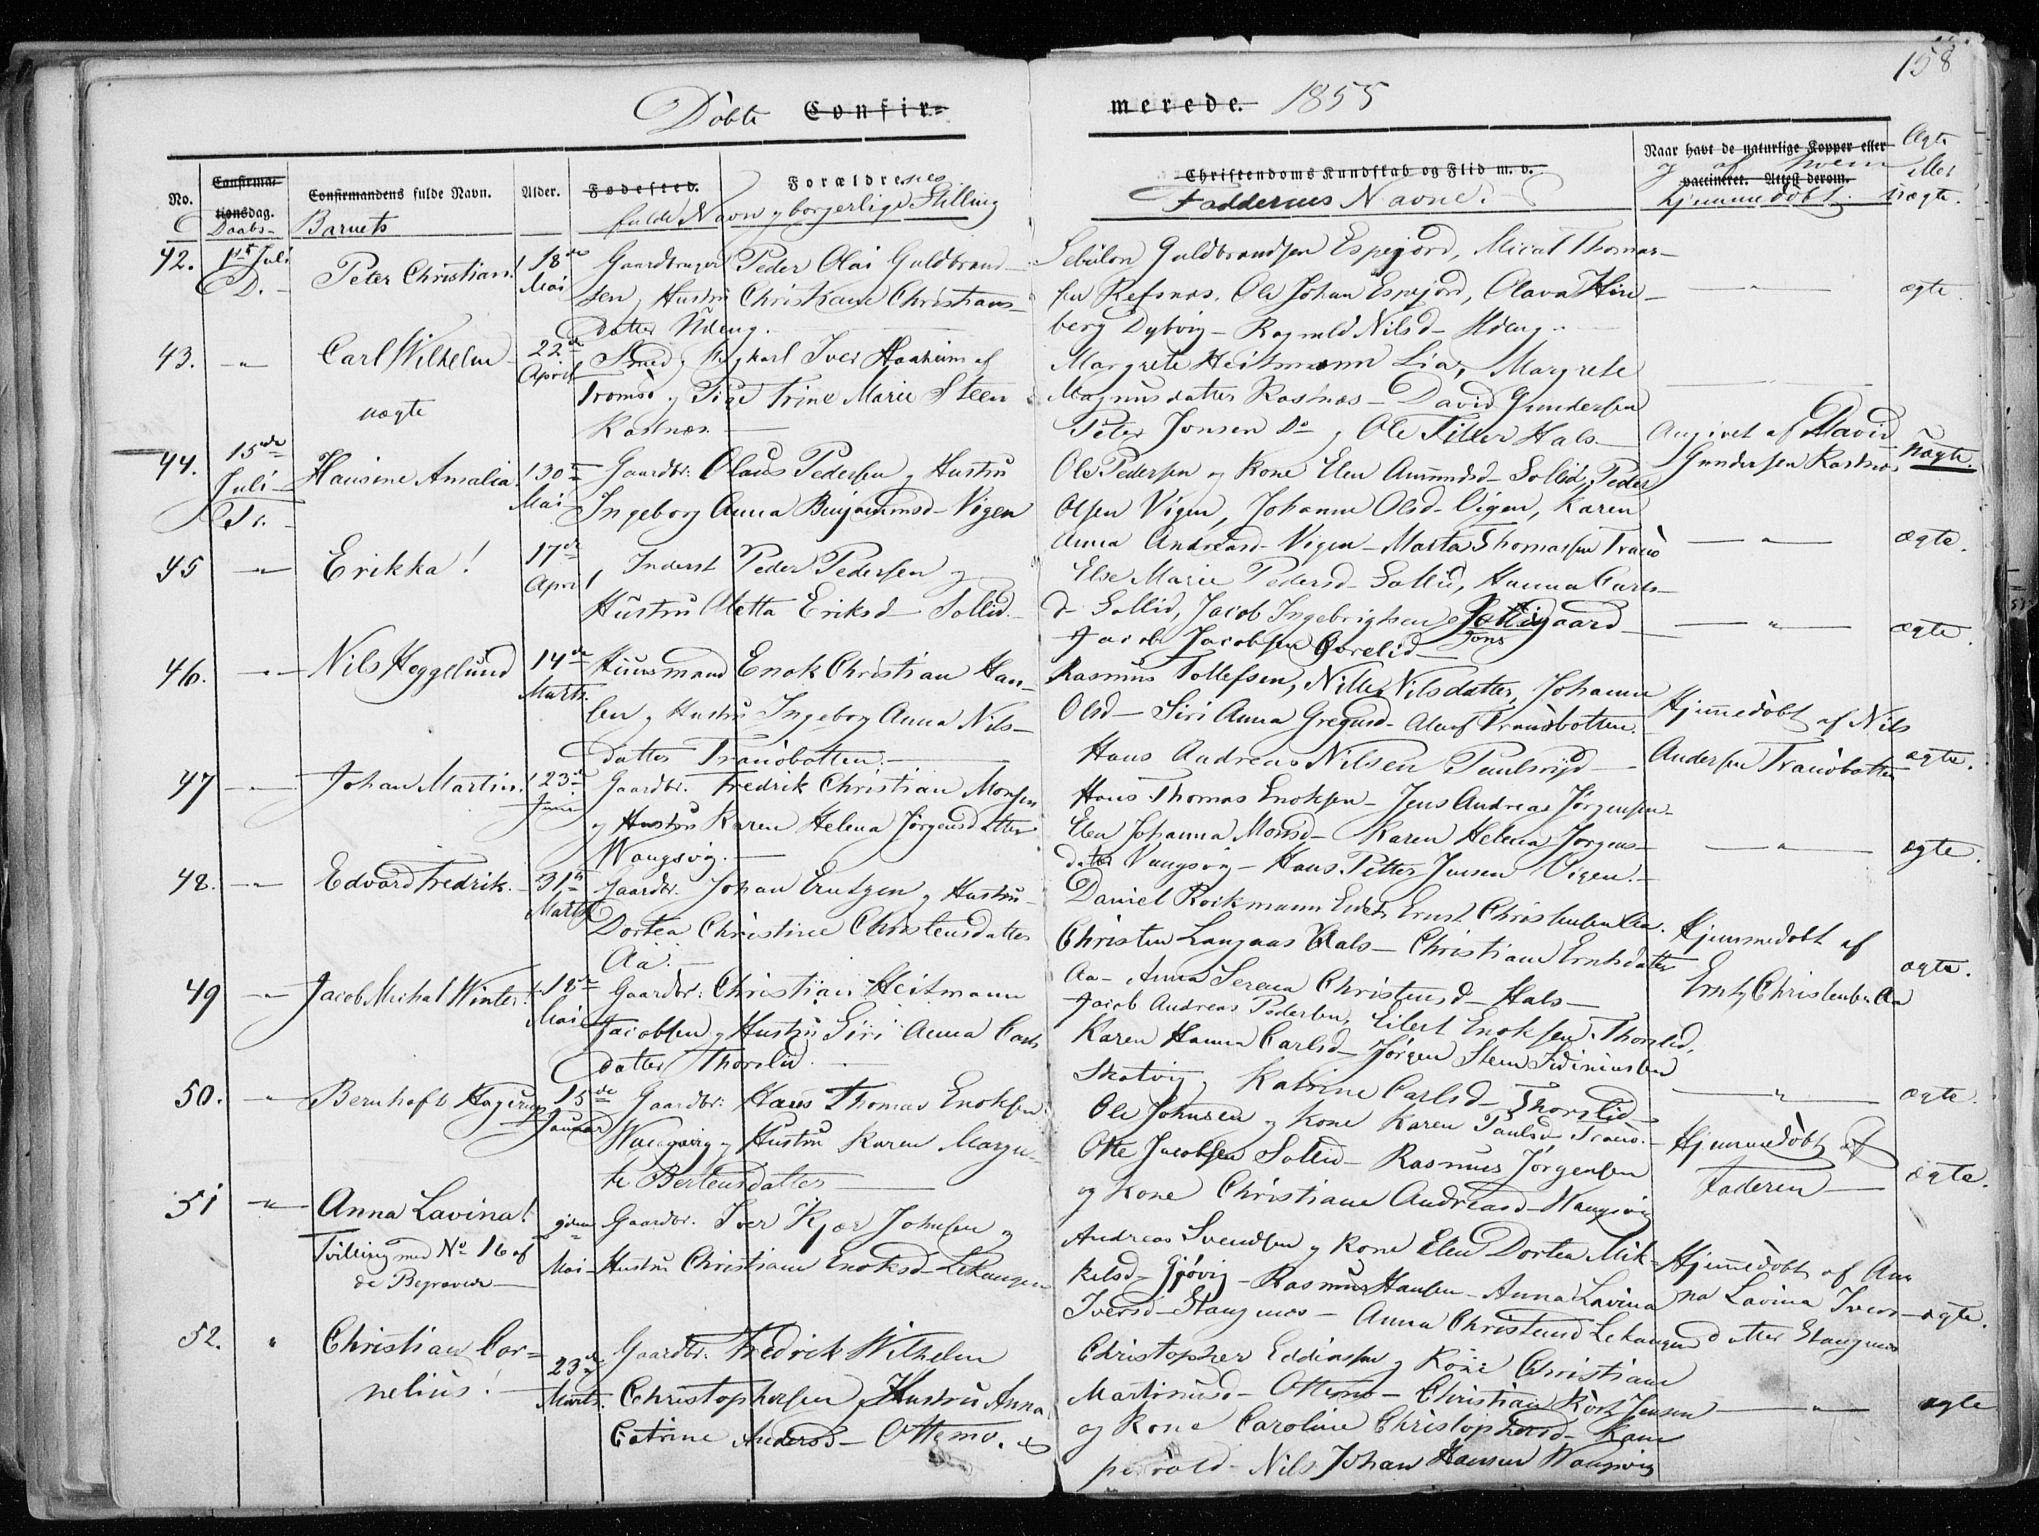 158
Döbte Confir= merede. 1855
No.
Confirmationsdag. Daabs-
Confirmandens fulde Navn. Barnets
Alder.
Fødested. Forældrenes fulde Navn og borgerlige Stilling
Christendoms Kundskab og Flid m. v. Faddernes Navne.
Naar havt de naturlige Kopper eller vaccineret. Attest derom. og af hvem hjemmedöbt.
Ægte eller Uægte.
42. 1ste Juli D. Peter Christian! 18de Mai
Gaardbruger Peder Olai Guldbrand-
sen og Hustru Christiane Christians-
datter Udeng.
Sebulon Guldbrandsen Espejord, Mical Thomas-
sen Refsnes. Ole Johan Espejord, Olava Hin-
berg Dybvig - Ragnild Nilsd- Udeng -
ægte.
43. -"- Carl Wilhelm 22de April
uægte
Smed og Ungkarl Iver Haaheim af
Tromsö og Pige Trine Marie Steen
Rostnæs -
Margrete Heitmann Lia, Margrete
Magnusdatter Rosnæs - David Gundersen
Peter Jonsen Do og Ole Tiller Hals -
Angivet af David
Gundersen Rostnæs
Uægte.
44. 15de Juli Tr. Hansine Amalia. 30te Mai
Gaardbr: Olaus Pedersen og Hustru
Ingeborg Anna Benjaminsd- Vigen
Ole Pedersen og Kone Elen Amundsd- Sollid, Peder
Olsen Vigen, Johanna Olsd- Vigen, Karen
Anna Andreasd- Vigen - Marta Thomassen Tranö
-"- ægte.
45 -"- Erikka! 17de April
Inderst Peder Pedersen og
Hustru Aletta Eriksd- Sollid.
Else Marie Pedersd- Sollid, Hanna Carls-
d- Sollid, Jacob Ingebrigtsen
Jacob Jacobsen
-"- ægte.
46. -"- Nils Heggelund 14de Marts.
Huusmand Enok Christian Han-
sen og Hustru Ingeborg Anna Nils-
datter Tranöbotten. -
Rasmus Tollefsen, Nille Nilsdatter, Johanna
Olsd- Siri Anna Gregusd- Alle af Tranöbotten.
Hans Andreas Nilsen Paulsrud -
Hjemmedöbt af Nils
Andersen Tranöbotten
ægte.
47 -"- Johan Martin. 23de Juni
Gaardbr. Fredrik Christian Monsen
og Hustru Karen Helena Jørgensdatter
Wangsvig. -
Hans Thomas Enoksen - Jens Andreas Jørgensen -
Elen Johanna Monsd- Karen Helena Jørgens-
datter Vangsvig - Hans Petter Jensen Vigen. -
-"- ægte.
48. -"- Edvard Fredrik. - 31te Marts
Gaardbr. Johan Erntzen og Hustru
Dortea Christine Christensdatter
Aa. -
Daniel Rockmann Eidet, Ernst Christensen Aa.
Christen Langaas Hals - Christiane Erntsdatter
Aa - Anna Serena Christensd- Hals -
Hjemmedöbt af
Ernst Christensen Aa
ægte.
49 -"- Jacob Michal Winter! 18de Mai
Gaardbr: Christian Heitmann
Jacobsen og Hustru Siri Anna Carls
datter Thorslid. -
Jacob Andreas Pedersen, Eilert Enoksen Thorslid,
Karen Hanna Carlsd- Jørgen Steen Edinussen
Skatvig, Katrine Carlsd- Thorslid -
-"- ægte.
50. -"- Bernhoft Hagerup 15de Januar
Gaardbr: Hans Thomas Enoksen
Wangsvig og Hustru Karen Margre-
te Berteusdatter -
Ole Johnsen og Kone Karen Paulsd- Tranö. -
Otte Jacobsen Sollid - Rasmus Jørgensen
og Kone Christiane Andreasd- Wangsvig
Hjemmedöbt af
Faderen -
ægte.
51 -"- Anna Lavina! 9de Mai
Tvilling med No 16 af
de Begravede -
Gaardbr. Iver Kjær Johnsen og
Hustru Christiane Enoksd- Lekangen
Andreas Svendsen og Kone Elen Dortea Mik-
kelsd- Gjövig - Rasmus Hansen - Anna Lavina
Iversd- Stangnæs - Anna Christensd Lekangen
Hjemmedöbt af An-
na Lavina Ivers-
datter Stangnæs
ægte.
52. " Christian Cor=
nelius! - 23de Marts.
Gaardbr: Fredrik Wilhelm
Christophersen og Hustru Anna
Catrine Andersd- Ottemo.
Christopher Eddinsen og Kone Christiane
Martinusd- Ottemo - Christian Rörk Jensen
og Kone Caroline Christophersd- Kam
pevold - Nils Johan Hansen Wangsvig
-"- ægte